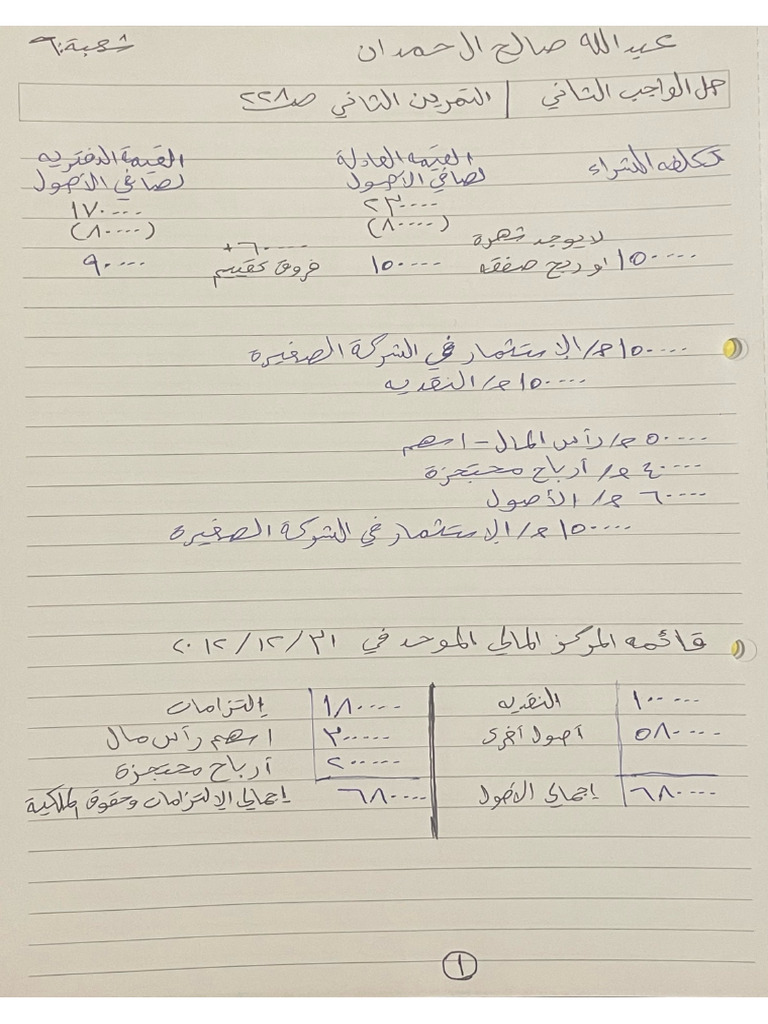 عبدالله صالح ال حمدان شعبة: ٦٠
حل الواجب الثاني | التمرين الثاني ص ٢٢٨
تكلفه الشراء القيمه العادلة القيمة الدفتريه
لصافي الأصول لصافي الأصول
٢٣٠٠٠٠ ١٧٠٠٠٠
(٨٠٠٠٠) (٨٠٠٠٠)
لا يوجد شهرة +٦٠٠٠٠
١٥٠٠٠٠ او ربح صفقه ١٥٠٠٠٠ فروق تقييم ٩٠٠٠٠
١٥٠٠٠٠ حـ/ الإستثمار في الشركة الصغيرة
١٥٠٠٠٠ حـ/ النقديه
٥٠٠٠٠ حـ/ رأس المال - اسهم
٤٠٠٠٠ حـ/ أرباح محتجزة
٦٠٠٠٠ حـ/ الأصول
١٥٠٠٠٠ حـ/ الإستثمار في الشركة الصغيرة
قائمه المركز المالي الموحد في ٢٠١٢/١٢/٣١
١٠٠٠٠٠ النقديه ١٨٠٠٠٠ إلتزامات
٥٨٠٠٠٠ أصول أخرى ٣٠٠٠٠٠ اسهم رأس مال
٢٠٠٠٠٠ أرباح محتجزة
٦٨٠٠٠٠ إجمالي الأصول ٦٨٠٠٠٠ إجمالي الإلتزامات وحقوق الملكية
١